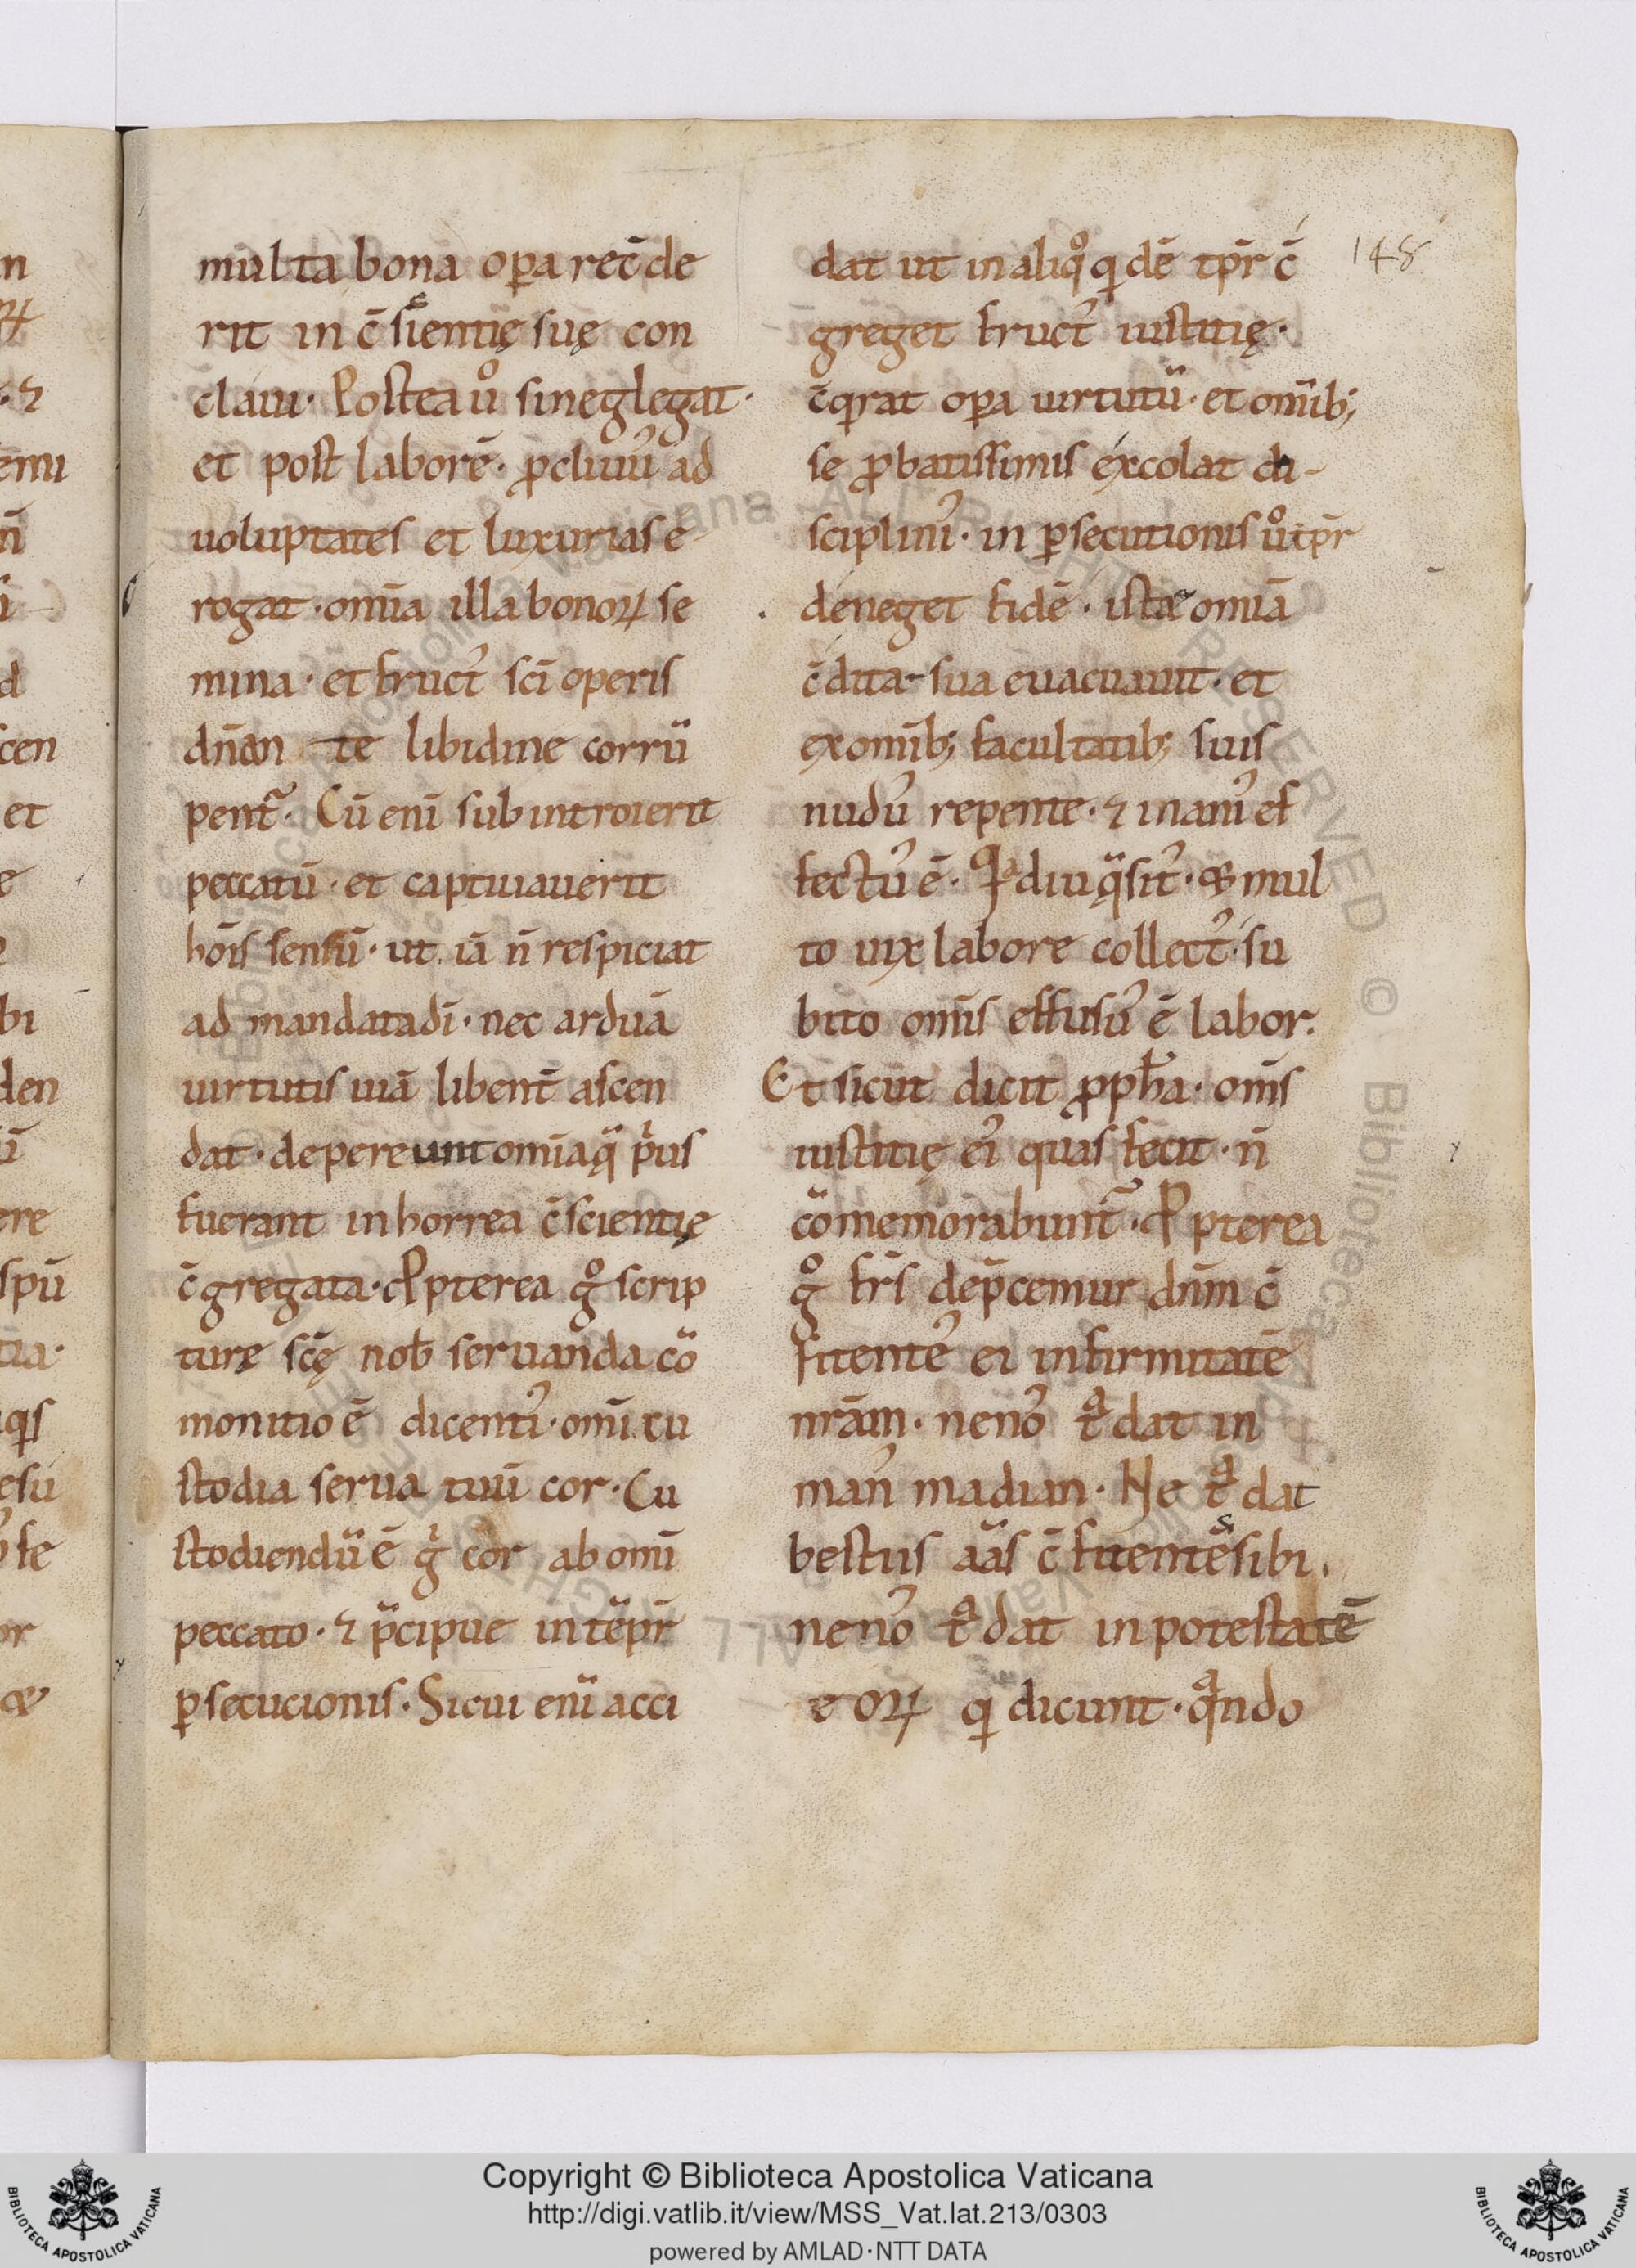 multa bona oꝑa rec̄de
rit in c̄scientię suę con
claui. Postea ůo si neglegat.
et post laborē. ꝓcliuiū ad
uoluptates et luxurias e
rogat. om̄ia illa bonoꝝ se
mina. et fruct᾽ sc̄i operis
dn̄an te libidine corrū
pent᷑. Cū eni᷑ subintroierit
peccatū. et captiuauerit
hōīs sensū. ut iā n̄ respiciat
ad mandata dī. nec arduā
uirtutis uiā libent̄ ascen
dat. depereunt omīa q̄ pͥus
fuerant in horrea c̄scientię
c̄gregata. Ꝓpterea gͦ scrip
turę scę̄ nob̄ seruanda cō
monitio ē dicentı᾽. omī cu
stodia serua tuū cor. Cu
stodiendū ē gͥ cor ab omī
peccato. ⁊ p̄cipue in tēpr̄
ꝑsecucionis. Sicui enī acci
dat ut in aliqͦ qͥdē tp̄r c̄
greget fruct᾽ iustitię.
c̄qrat oꝑa uirtutū. et omīb;
se ꝓbatissimis excolat di-
sciplini᾽. in ꝑsecutionis ůo tp̄r
deneget fidē. ista omīa
c̄dita sua euacuauit. et
ex omīb; facultatib; suis
nudu᾽ repente. ⁊ inani᾽ ef
fectu᾽ ē. Qͣ diu q̄sit᾽. ⁊ mul
to uix labore collect᾽. su
bito omīs effusu᾽ ē labor.
Et sicut dicit ꝓph̄a. omīs
iustitię ei᾽ quas fecit. n̄
cōmemorabunt᷑. Ꝓpterea
gͦ fr̄s dep̄cemur dn̄m c̄
fitente᾽ ei infirmitatē
nr̄am. ne no᾽ tͣdat in
man᾽ madian. Ne tͣdat
bestiis aīas c̄fitentēs sibi.
ne no᾽ tͣdat in potestatē
eoꝝ qͥ dicunt. qͣndo
148
Copyright © Biblioteca Apostolica Vaticana
http://digi.vatlib.it/view/MSS_Vat.lat.213/0303
powered by AMLAD·NTT DATA
BIBLIOTECA APOSTOLICA VATICANA
BIBLIOTECA APOSTOLICA VATICANA